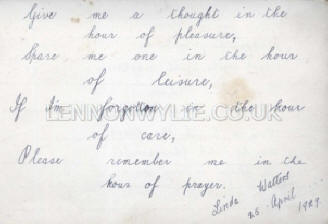 Give me a thought in the
hour of pleasure,
Spare me one in the hour
of leisure,
If I'm forgotten in the hour
of care,
Please remember me in the
hour of prayer.
Linda Watters
25 April 1929.
LENNONWYLIE.CO.UK